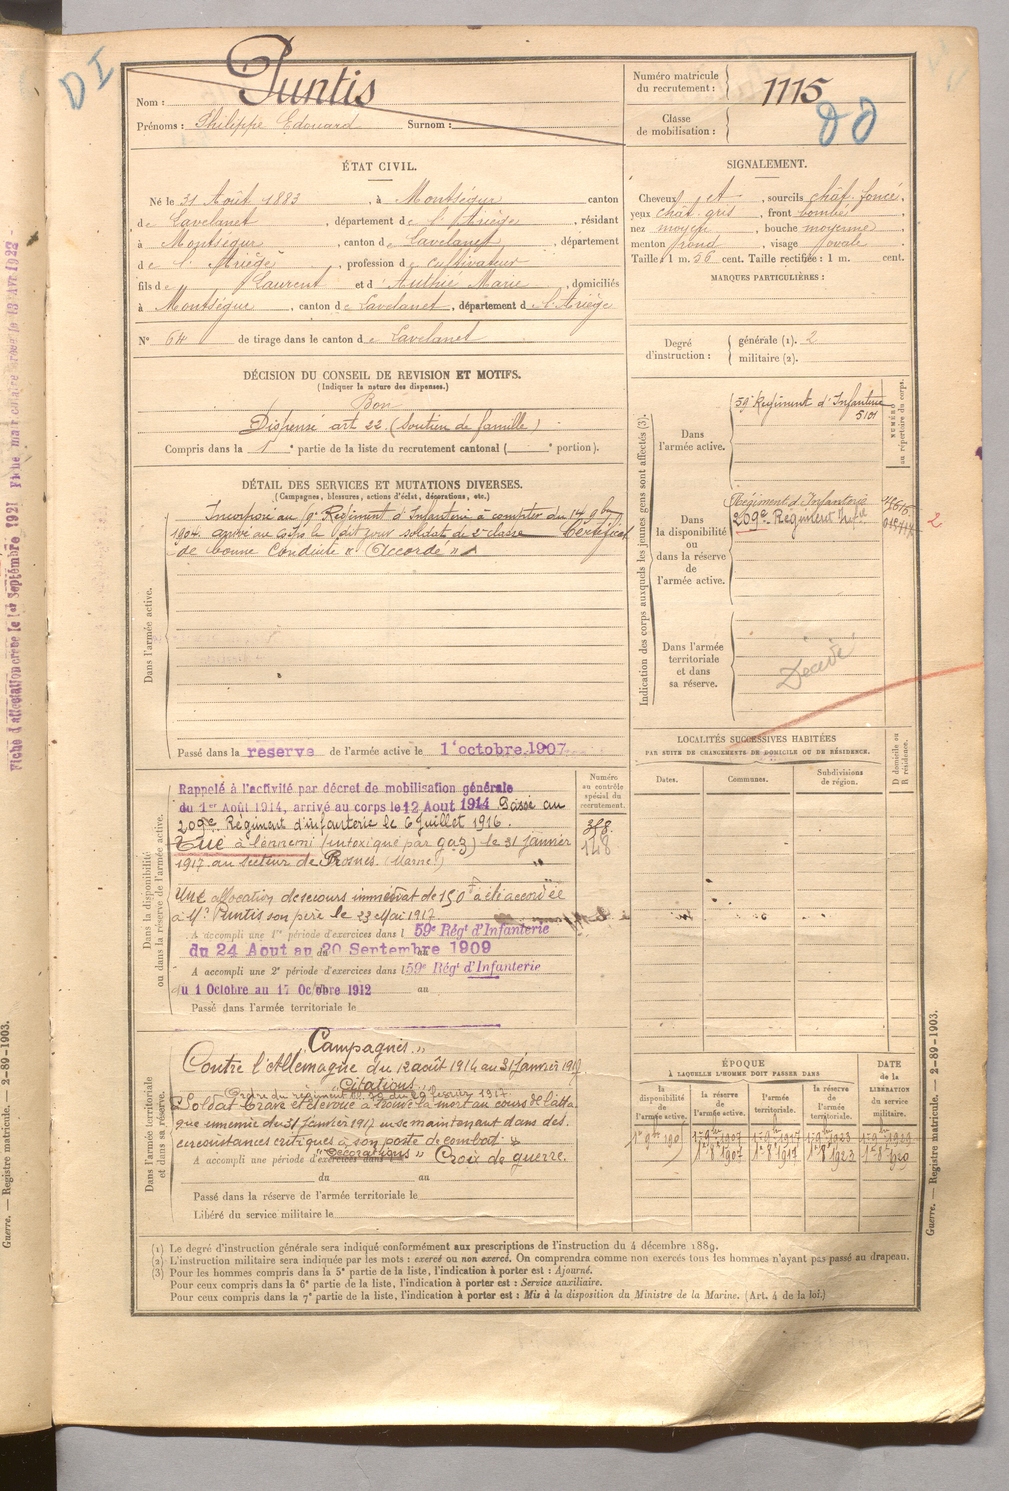 DI
Nom : Puntis
Prénoms : Philippe Edouard Surnom :
Numéro matricule du recrutement : 1115
Classe de mobilisation :
ÉTAT CIVIL.
Né le 31 Août 1883, à Montségur canton
de Lavelanet, département de l'Ariège, résidant
à Montségur, canton de Lavelanet, département
de l'Ariège, profession de cultivateur
fils de Laurent et d'Authié Marie, domiciliés
à Montségur, canton de Lavelanet, département de l'Ariège
N° 64 de tirage dans le canton de Lavelanet
SIGNALEMENT.
Cheveux et, sourcils chât. foncé,
yeux chât. gris, front bombé,
nez moyen, bouche moyenne,
menton rond, visage ovale.
Taille : 1 m. 56 cent. Taille rectifiée : 1 m. cent.
MARQUES PARTICULIÈRES :
Degré d'instruction : générale (1). 2
militaire (2).
DÉCISION DU CONSEIL DE REVISION ET MOTIFS.
(Indiquer la nature des dispenses.)
Bon
Dispensé art 22 (Soutien de famille)
Compris dans la 1e partie de la liste du recrutement cantonal ( e portion).
DÉTAIL DES SERVICES ET MUTATIONS DIVERSES.
(Campagnes, blessures, actions d'éclat, décorations, etc.)
Dans l'armée active.
Incorporé au Régiment d'Infanterie à compter du 14 9bre
1904. arrivé au corps le dit jour soldat de 2e classe Certificat
de bonne Conduite "Accordé"
Passé dans la reserve de l'armée active le 1 octobre 1907
Indication des corps auxquels les jeunes gens sont affectés (3).
NUMÉRO au répertoire du corps.
Dans l'armée active.
59e Régiment d'Infanterie
5101
Dans la disponibilité ou dans la réserve de l'armée active.
Régiment d'Infanterie
209e Régiment Infie
2
Dans l'armée territoriale et dans sa réserve.
Décédé
Dans la disponibilité ou dans la réserve de l'armée active.
Rappelé à l'activité par décret de mobilisation générale
du 1er Août 1914, arrivé au corps le 12 Aout 1914 Passé au
209e Régiment d'infanterie le 6 Juillet 1916.
Tué à l'ennemi (intoxiqué par gaz) le 31 janvier
1917 au secteur de Prosnes (Marne)
Une allocation de secours immédiat de 150 f a été accordée
à Mr Puntis son père le 23 Mai 1917.
A accompli une 1re période d'exercices dans l 59e Régt d'Infanterie
du 24 Aout au 20 Septembre 1909
A accompli une 2e période d'exercices dans l 59e Régt d'Infanterie
du 1 Octobre au 17 Octobre 1912 au
Passé dans l'armée territoriale le
Numéro au contrôle spécial du recrutement.
148
LOCALITÉS SUCCESSIVES HABITÉES
PAR SUITE DE CHANGEMENTS DE DOMICILE OU DE RÉSIDENCE.
Dates. Communes. Subdivisions de région. D domicile ou R résidence.
Dans l'armée territoriale et dans sa réserve.
"Campagnes."
Contre l'Allemagne du 12 août 1914 au 31 Janvier 1917
"Citations"
Soldat brave et dévoué a trouvé la mort au cours de l'atta
que ennemie du 31 janvier 1917 en se maintenant dans des
circonstances critiques à son poste de combat.
A accompli une période d'exercices dans l "Décorations" Croix de guerre.
du au
Passé dans la réserve de l'armée territoriale le
Libéré du service militaire le
ÉPOQUE
À LAQUELLE L'HOMME DOIT PASSER DANS
la disponibilité de l'armée active. la réserve de l'armée active. l'armée territoriale. la réserve de l'armée territoriale.
DATE de la LIBÉRATION du service militaire.
1er 8bre 1907 1er 8bre 1917 1er 8bre 1923 1er 8bre 1929
(1) Le degré d'instruction générale sera indiqué conformément aux prescriptions de l'instruction du 4 décembre 1889.
(2) L'instruction militaire sera indiquée par les mots : exercé ou non exercé. On comprendra comme non exercés tous les hommes n'ayant pas passé au drapeau.
(3) Pour les hommes compris dans la 5e partie de la liste, l'indication à porter est : Ajourné.
Pour ceux compris dans la 6e partie de la liste, l'indication à porter est : Service auxiliaire.
Pour ceux compris dans la 7e partie de la liste, l'indication à porter est : Mis à la disposition du Ministre de la Marine. (Art. 4 de la loi.)
Guerre. — Registre matricule. — 2-89-1903.
Guerre. — Registre matricule. — 2-89-1903.